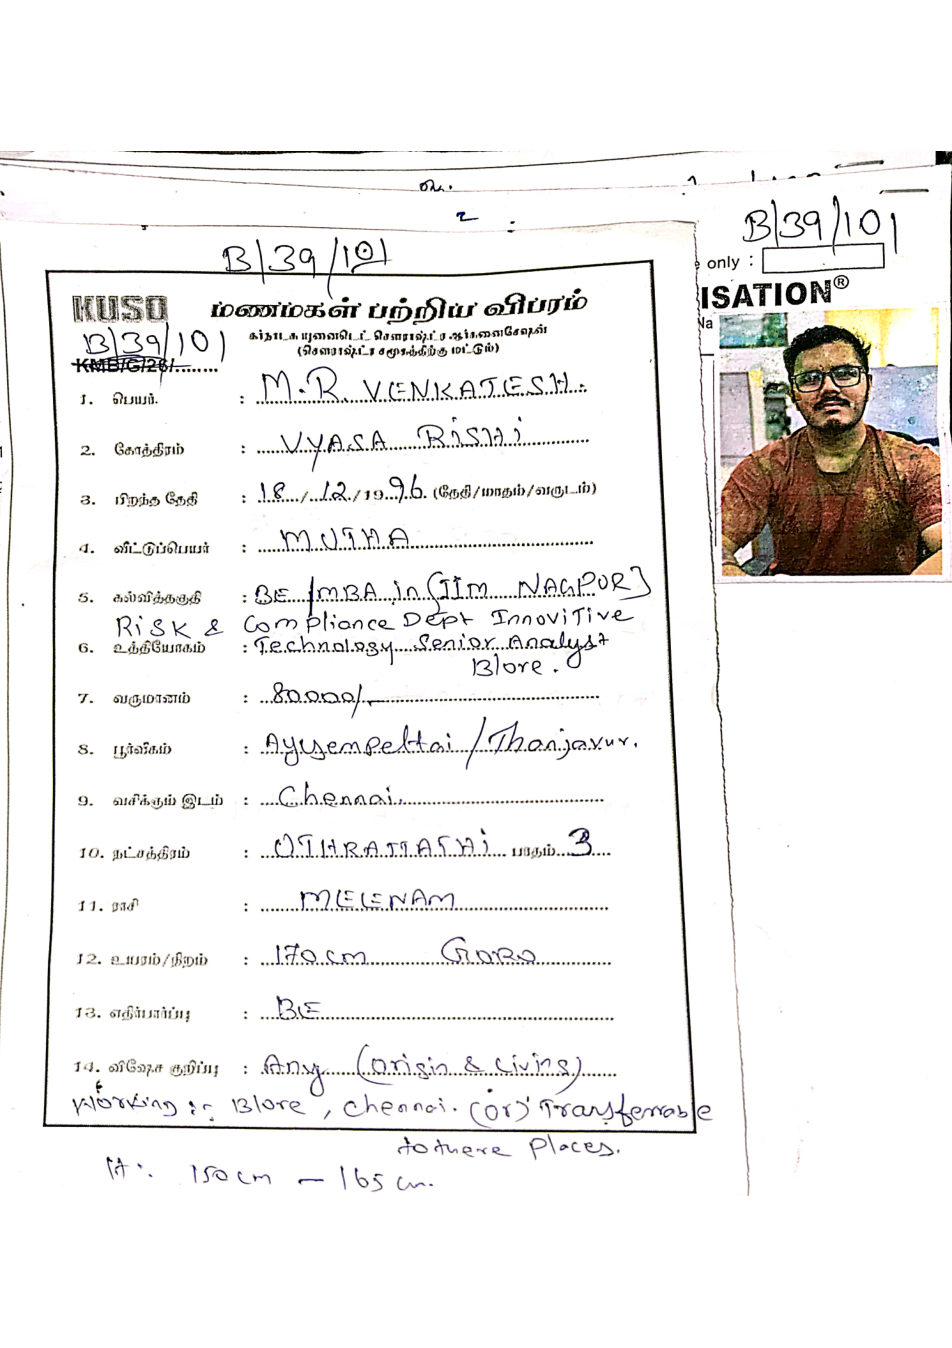 ஸ்ரீ.
2
B/39/101
only :
ISATION®
Na
B/39/101
KUSO மணமகள் பற்றிய விபரம்
கர்நாடகா யுனைடெட் சௌராஷ்ட்ர ஆர்கனைசேஷன்
(சௌராஷ்ட்ர சமூகத்திற்கு மட்டும்)
B/39/101
KMB/G/26/.........
1. பெயர். : M.R. VENKATESH.
2. கோத்திரம் : VYASA RISHI
3. பிறந்த தேதி : 18/12/1996. (தேதி/மாதம்/வருடம்)
4. வீட்டுப்பெயர் : MUTHA
5. கல்வித்தகுதி : BE / MBA in (IIM NAGPUR)
RISK & Compliance Dept Innovitive
6. உத்தியோகம் : Technology Senior Analyst
Blore.
7. வருமானம் : 80000/-
8. பூர்வீகம் : Ayyempettai / Thanjavur.
9. வசிக்கும் இடம் : Chennai.
10. நட்சத்திரம் : OTHRATTATHI பாதம் 3
11. ராசி : MEENAM
12. உயரம்/நிறம் : 170cm GORO
13. எதிர்பார்ப்பு : BE
14. விஷேச குறிப்பு : Any (Origin & Living)
Working :- Blore, Chennai. (or) Transferrable
to there Places.
Ht :. 150cm - 165cm.